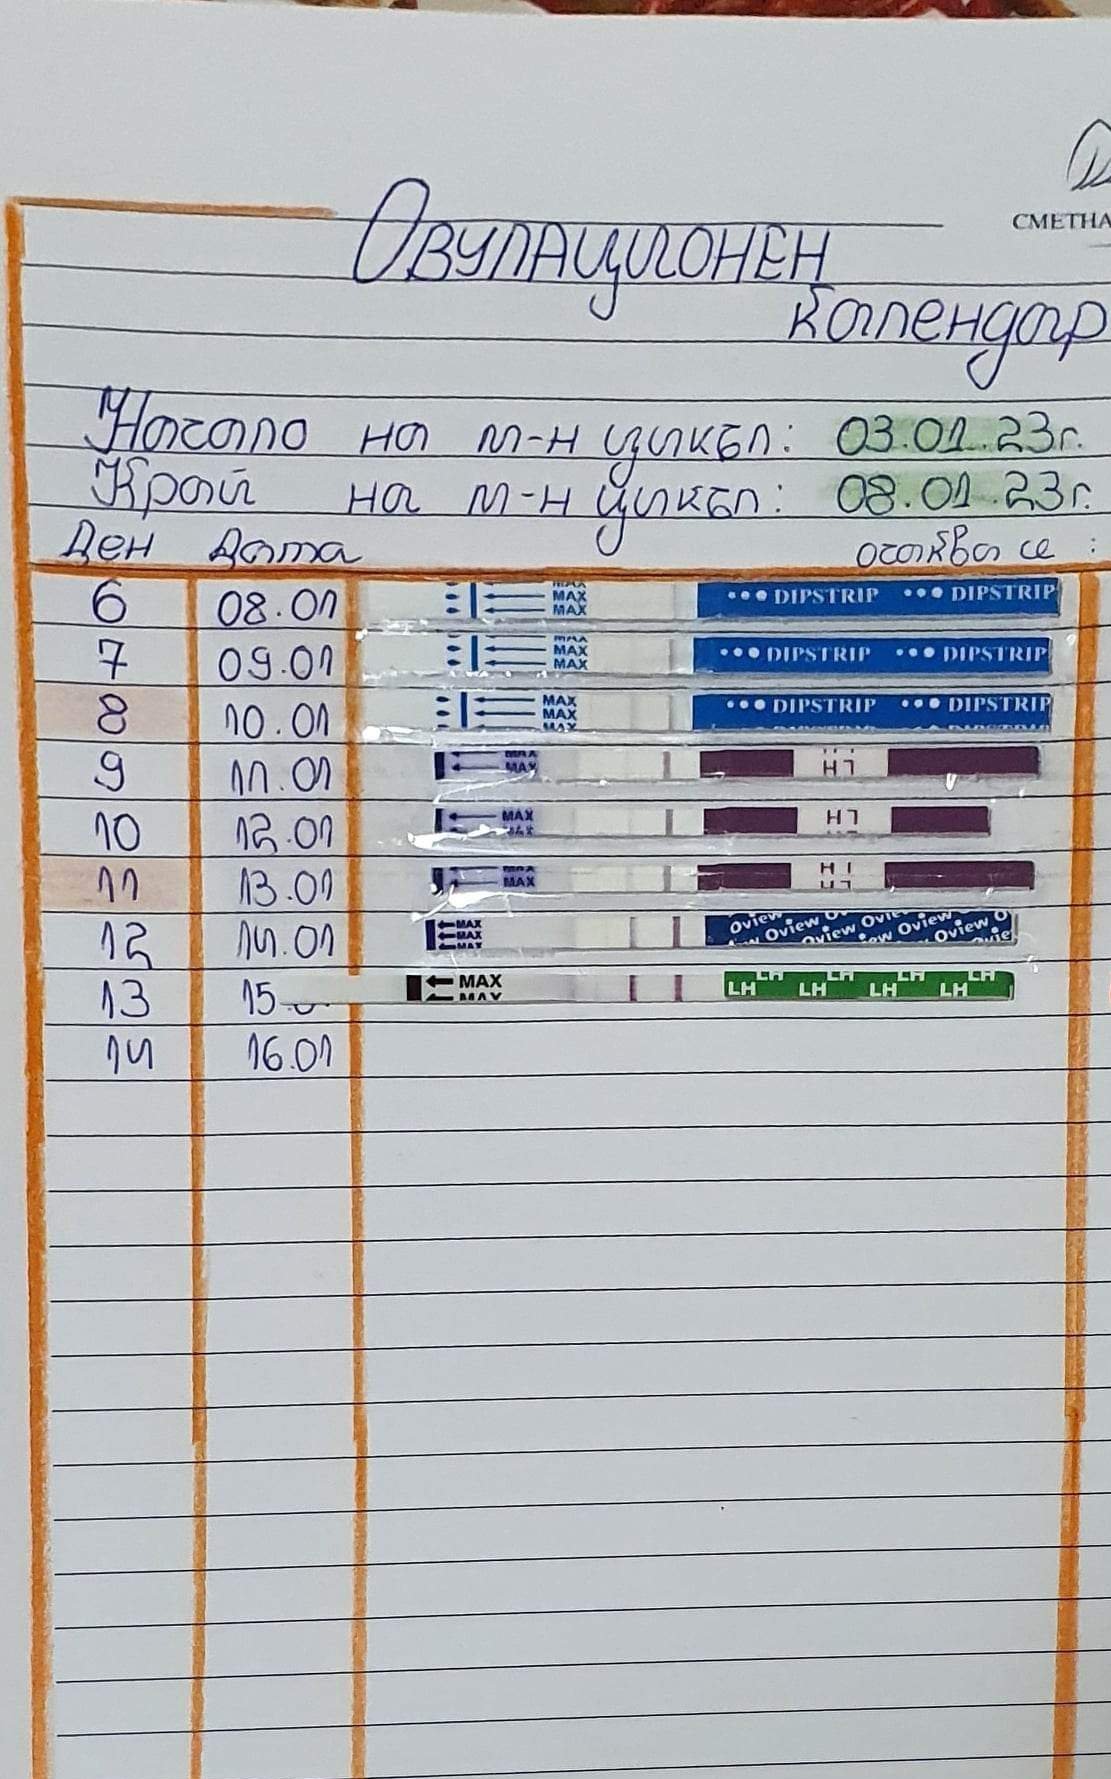 СМЕТНА
Овулационен
календар
Начало на м-н цикъл: 03.01.23г.
Край на м-н цикъл: 08.01.23г.
Ден Дата очаква се :
6 08.01 MAX MAX MAX DIPSTRIP DIPSTRIP
7 09.01 MAX MAX MAX DIPSTRIP DIPSTRIP
8 10.01 MAX MAX MAX DIPSTRIP DIPSTRIP
9 11.01 MAX MAX LH
10 12.01 MAX MAX LH
11 13.01 MAX MAX LH LH
12 14.01 MAX MAX MAX Oview Oview Oview Oview Oview Oview
13 15.0 MAX MAX LH LH LH LH LH LH LH LH
14 16.01